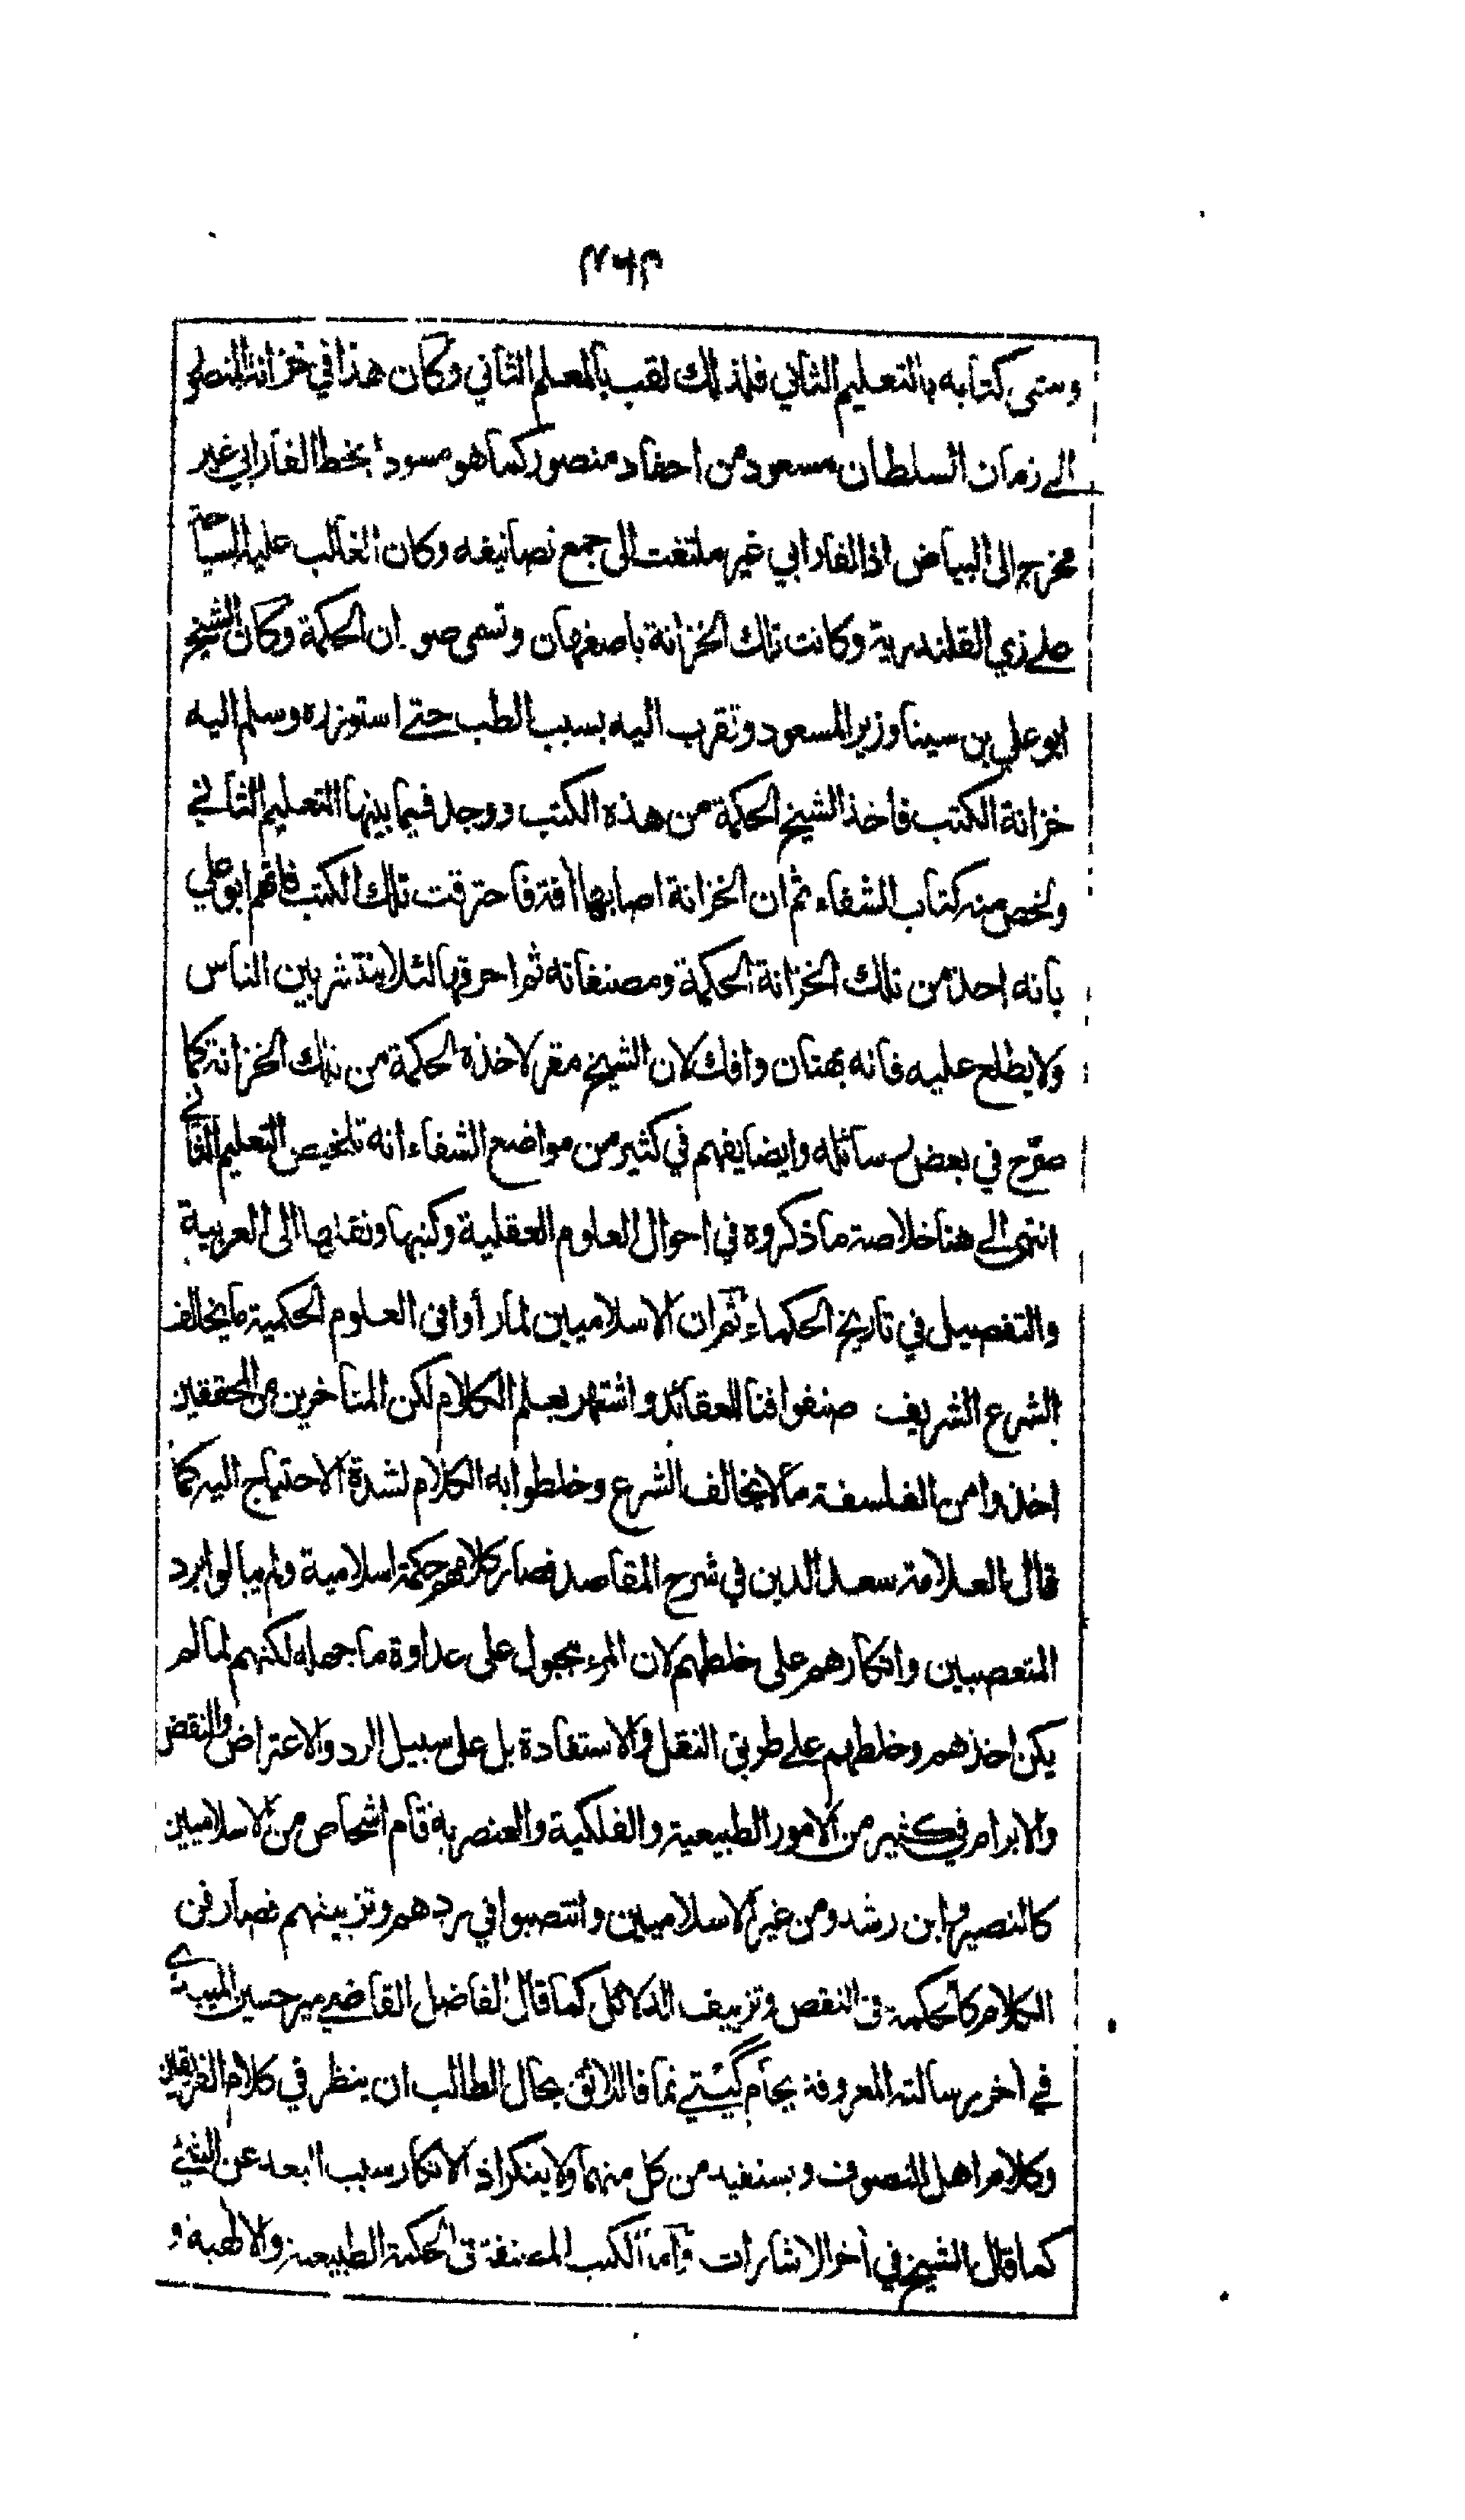 وسمى كتابه بالتعليم الثاني فلذلك لقب بالمعلم الثاني وكان هذا في خزانة المنصور
الى زمان السلطان مسعود من احفاد منصور كما هو مسودا بخط الفارابي غير
مخرج الى البياض اذ الفارابي غير ملتفت الى جمع تصانيفه وكان الغالب عليه السياحة
على زي القلندرية وكانت تلك الخزانة باصفهان وتسمى صوان الحكمة وكان الشيخ
ابو علي بن سينا وزير المسعود وتقرب اليه بسبب الطب حتى استوزره وسلم اليه
خزانة الكتب فاخذ الشيخ الحكمة من هذه الكتب ووجد فيما بينها التعليم الثاني
ولخص منه كتاب الشفاء ثم ان الخزانة اصابها افة فاحترقت تلك الكتب فاتهم ابو علي
بانه اخذ من تلك الخزانة الحكمة ومصنفاته ثم احرقها لئلا ينتشر بين الناس
ولا يطلع عليه فانه بهتان وافك لان الشيخ مقر لاخذه الحكمة من تلك الخزانة كما
صرّح في بعض رسائله وايضا يفهم في كثير من مواضع الشفاء انه تلخيص التعليم الثاني
انتهى الى هنا خلاصة ما ذكروه في احوال العلوم العقلية وكتبها ونقلها الى العربية
والتفصيل في تاريخ الحكماء ثم ان الاسلاميين لما رأوا في العلوم الحكمية ما يخالف
الشرع الشريف صنفوا فنا للعقائد واشتهر بعلم الكلام لكن المتاخرين من المحققين
اخذوا من الفلسفة ما لا يخالف الشرع وخلطوا به الكلام لشدة الاحتياج اليه كما
قال العلامة سعد الدين في شرح المقاصد فصار كلامهم حكمة اسلامية ولم يبالوا برد
المتعصبين وانكارهم على خلطهم لان المرء مجبول على عداوة ما جهله لكنهم لما لم
يكن اخذهم وخلطهم على طريق النقل والاستفادة بل على سبيل الرد والاعتراض والنقض
والابرام في كثير من الامور الطبيعية والفلكية والعنصرية قام اشخاص من الاسلاميين
كالنصير وابن رشد ومن غير الاسلاميين وانتصبوا في ردهم وتزييفهم فصار فن
الكلام كالحكمة في النقض وتزييف الدلائل كما قال الفاضل القاضي مير حسين الميبدي
في اخر رسالته المعروفة بجام گيتي نما فاللائق بحال الطالب ان ينظر في كلام الفريقين
وكلام اهل التصوف ويستفيد من كل منهما ولا ينكر اذ الانكار سبب البعد عن الشئ
كما قال الشيخ في آخر الاشارات واما الكتب المصنفة في الحكمة الطبيعية والالهية و